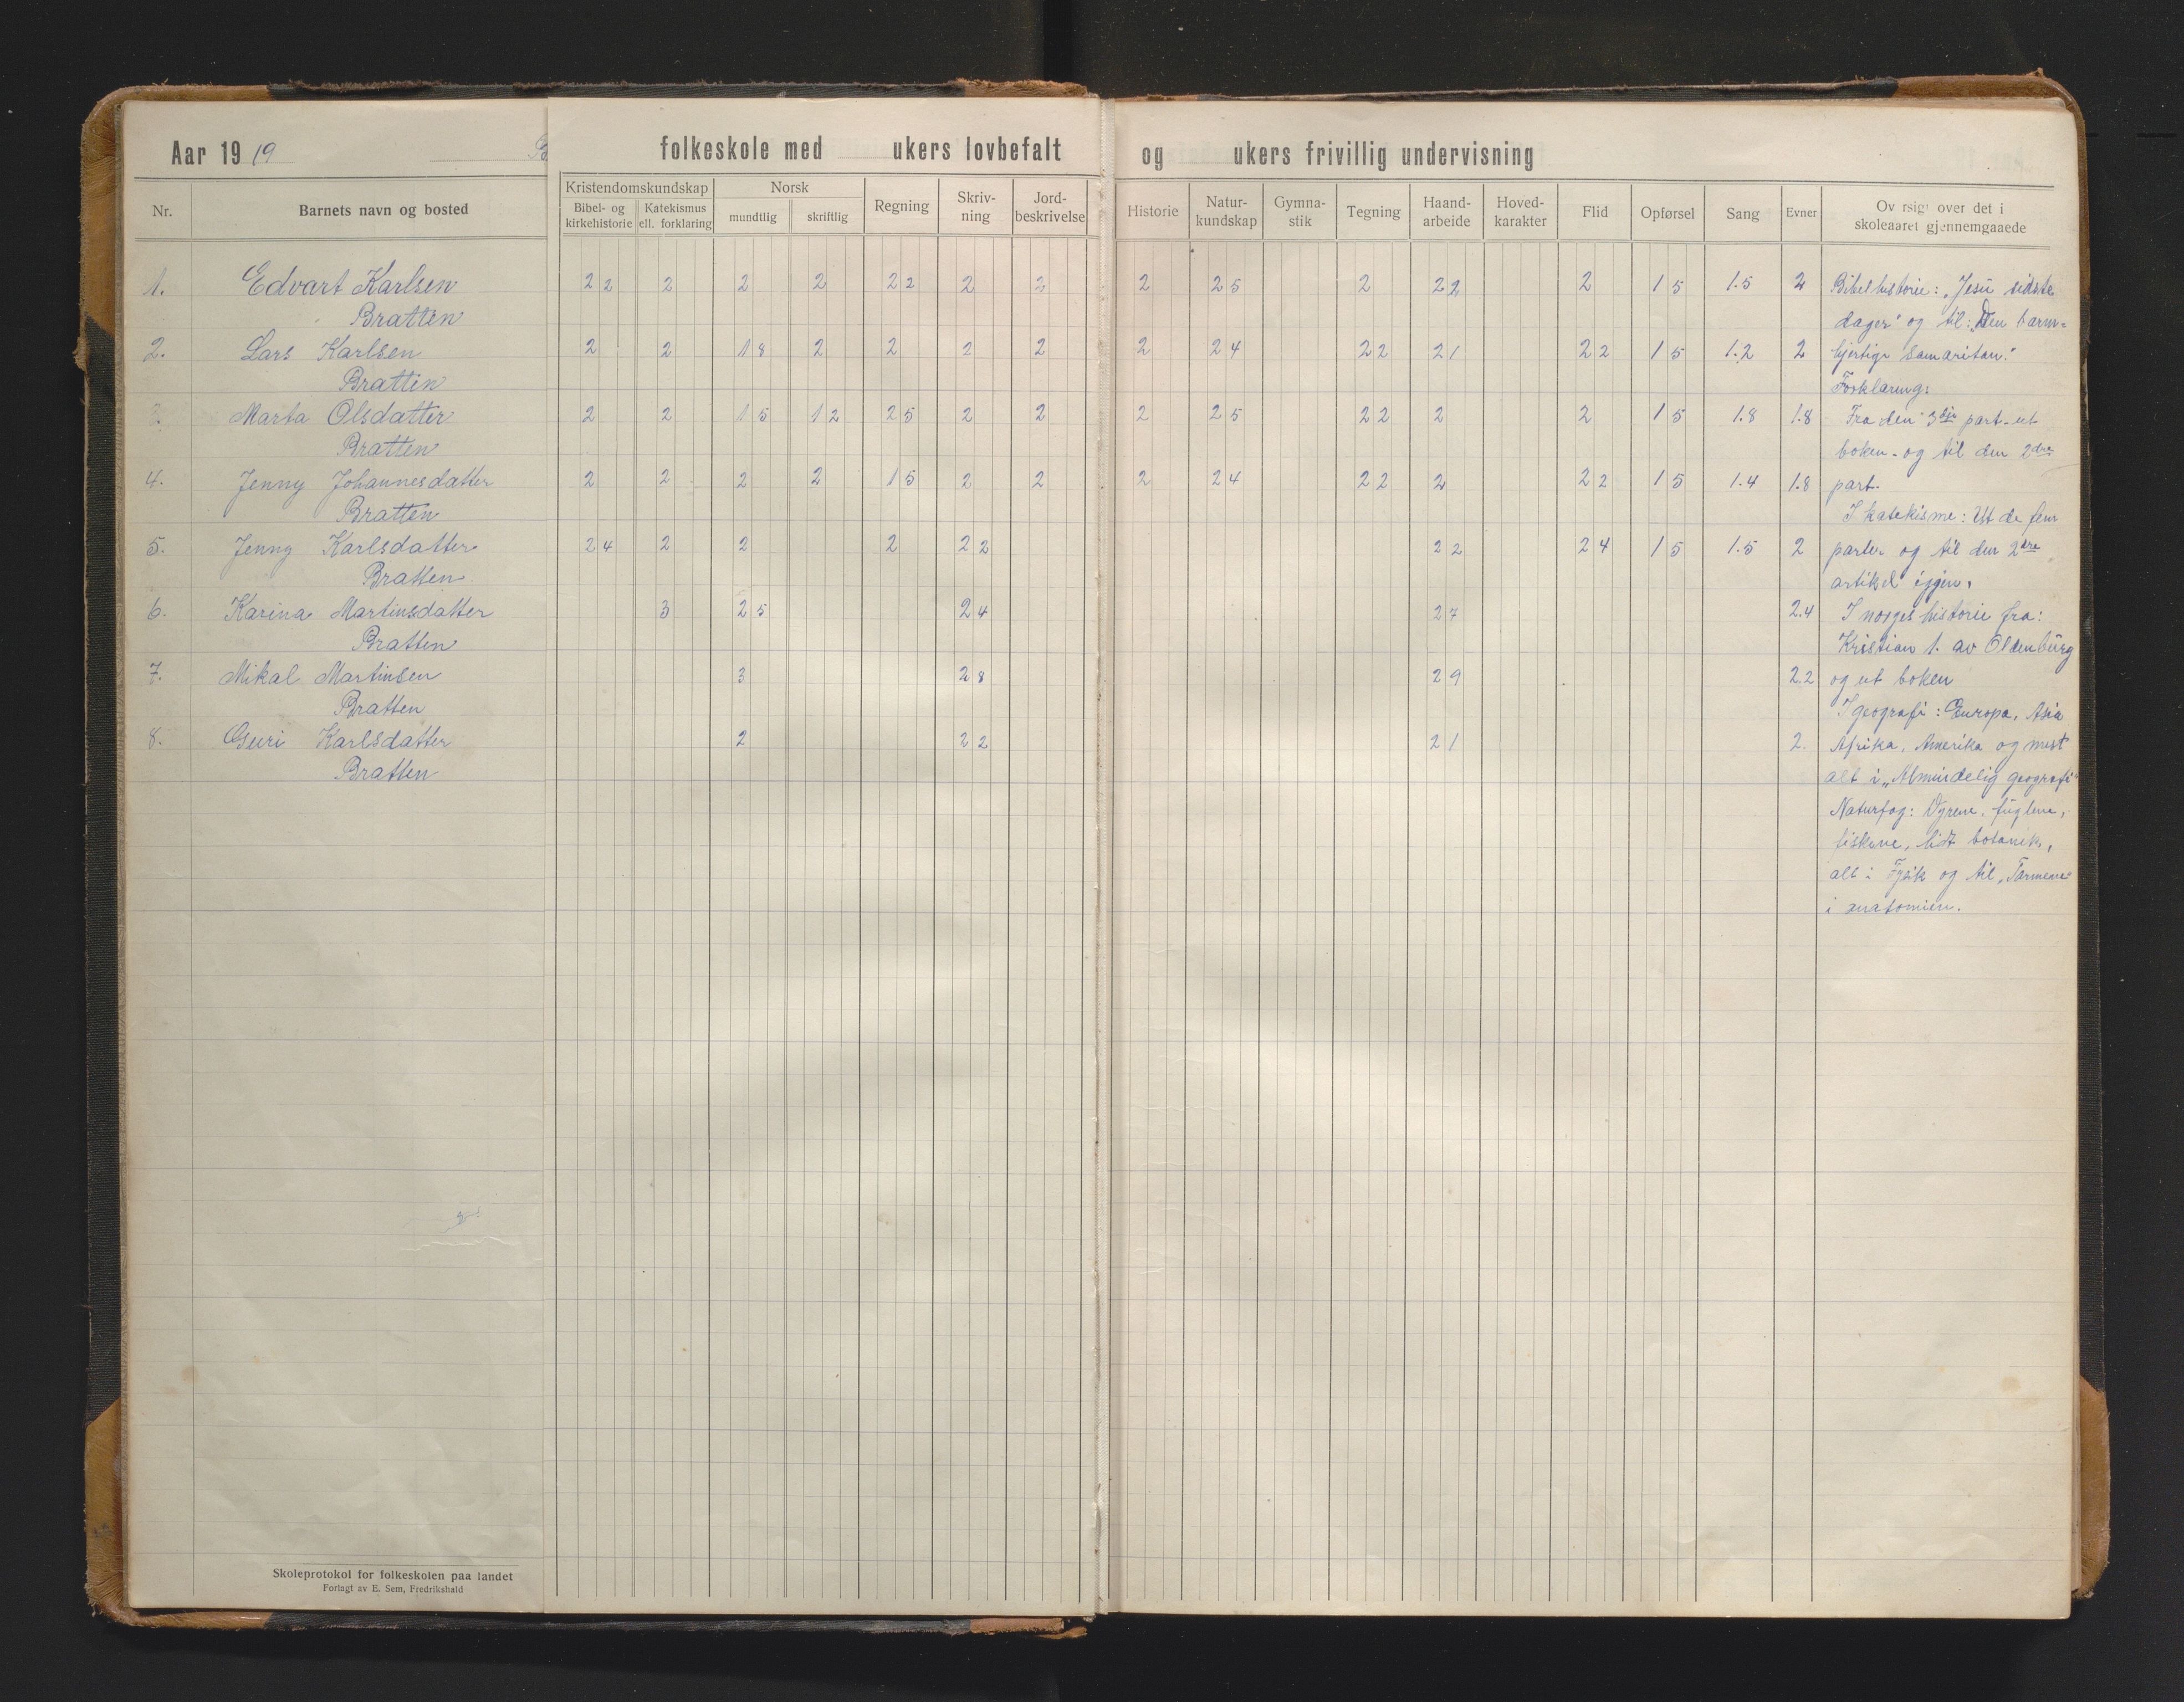 Aar 19 19 B folkeskole med ukers lovbefalt og ukers frivillig undervisning
Nr. Barnets navn og bosted Kristendomskundskap Bibel- og kirkehistorie Katekismus ell. forklaring Norsk mundtlig skriftlig Regning Skriv-ning Jord-beskrivelse Historie Natur-kundskap Gymna-stik Tegning Haand-arbeide Hoved-karakter Flid Opførsel Sang Evner Ov rsig over det i skoleaaret gjennemgaaede
1. Edvart Karlsen 2 2 2 2 2 2 2 2 2 2 2 5 2 2 2 2 1 5 1.5 2 Bibelhistorie: „Jesu sidste
Bratten dager" og til: „Den barm=
2. Lars Karlsen 2 2 1 8 2 2 2 2 2 2 4 2 2 2 1 2 2 1 5 1.2 2 hjertige samaritan."
Bratten Forklaring:
3. Marta Olsdatter 2 2 1 5 1 2 2 5 2 2 2 2 5 2 2 2 2 1 5 1.8 1.8 Fra den 3dje part - ut
Bratten boken - og til den 2dre
4. Jenny Johannesdatter 2 2 2 2 1 5 2 2 2 2 4 2 2 2 2 2 1 5 1.4 1.8 part.
Bratten I katekisme: Ut de fem
5. Jenny Karlsdatter 2 4 2 2 2 2 2 2 2 2 4 1 5 1.5 2 parter og til den 2dre
Bratten artikel igjen.
6. Karina Martinsdatter 3 2 5 2 4 2 7 2.4 I norges historie fra:
Bratten Kristian 1. av Oldenburg
7. Mikal Martinsen 3 2 8 2 9 2.2 og ut boken
Bratten I geografi: Europa, Asia
8. Guri Karlsdatter 2 2 2 2 1 2. Afrika, Amerika og mest
Bratten alt i „Almindelig geografi"
Naturfag: Dyrene, fuglene,
fiskene, lidt botanik,
alt i Fysik og til „Tarmene"
i anatomien.
Skoleprotokol for folkeskolen paa landet
Forlagt av E. Sem, Fredrikshald